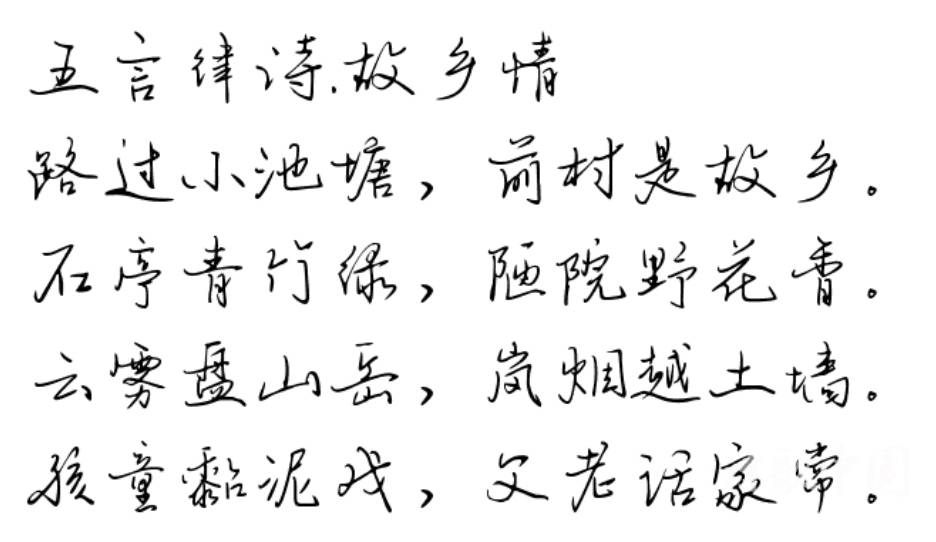 五言律诗.故乡情
路过小池塘，前村是故乡。
石亭青竹绿，陋院野花香。
云雾盘山岳，岚烟越土墙。
孩童黏泥戏，父老话家常。